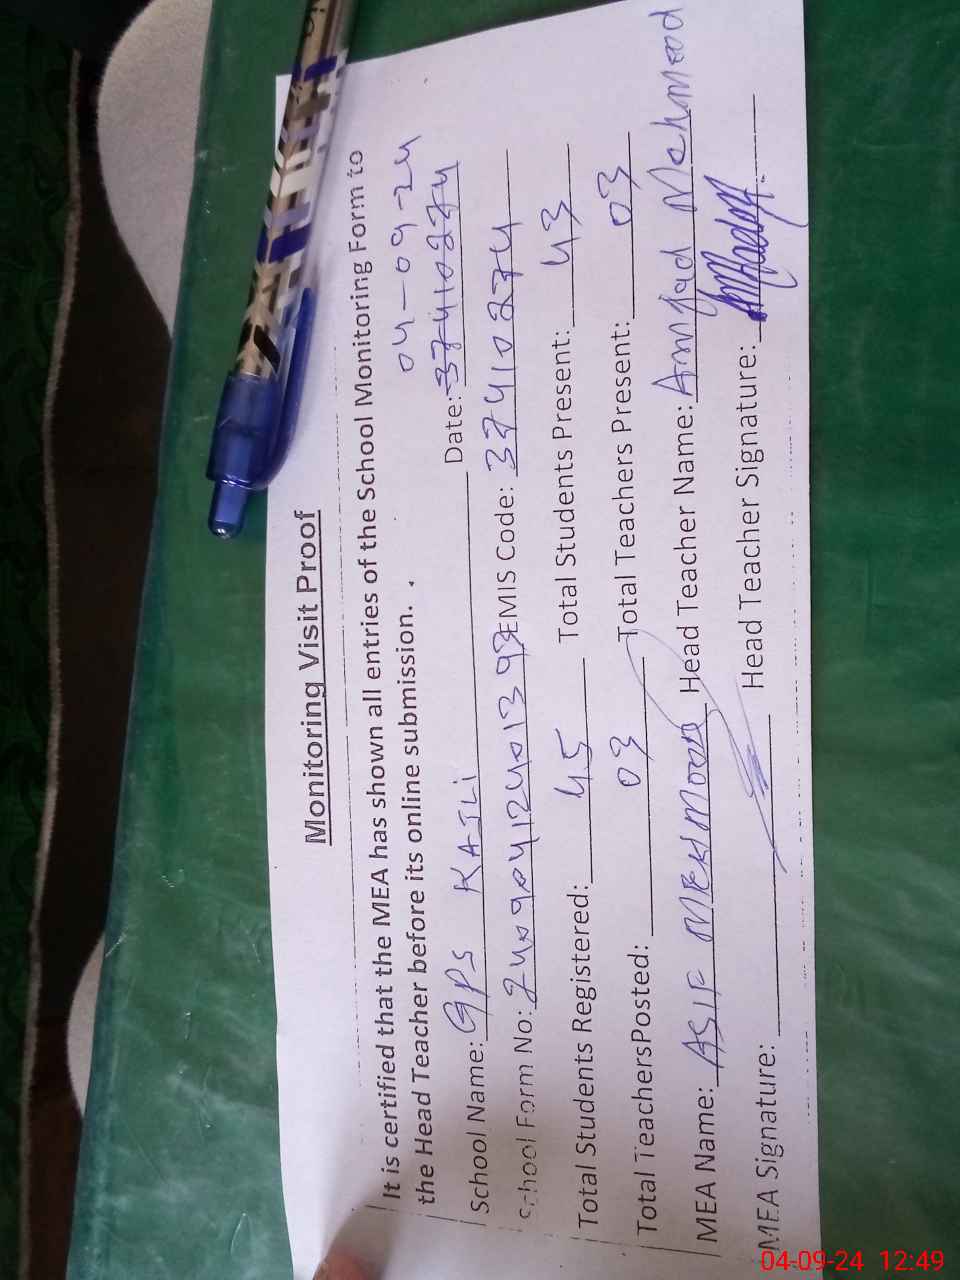 Monitoring Visit Proof
It is certified that the MEA has shown all entries of the School Monitoring Form to
the Head Teacher before its online submission.
04-09-24
School Name: GPS KAJLi Date: 37410274
School Form No: 2409041240139 EMIS Code: 37410274
Total Students Registered: 45 Total Students Present: 43
Total TeachersPosted: 03 Total Teachers Present: 03
MEA Name: ASIF MEHMOOD Head Teacher Name: Amjad Mehmood
MEA Signature: Head Teacher Signature:
04-09-24 12:49